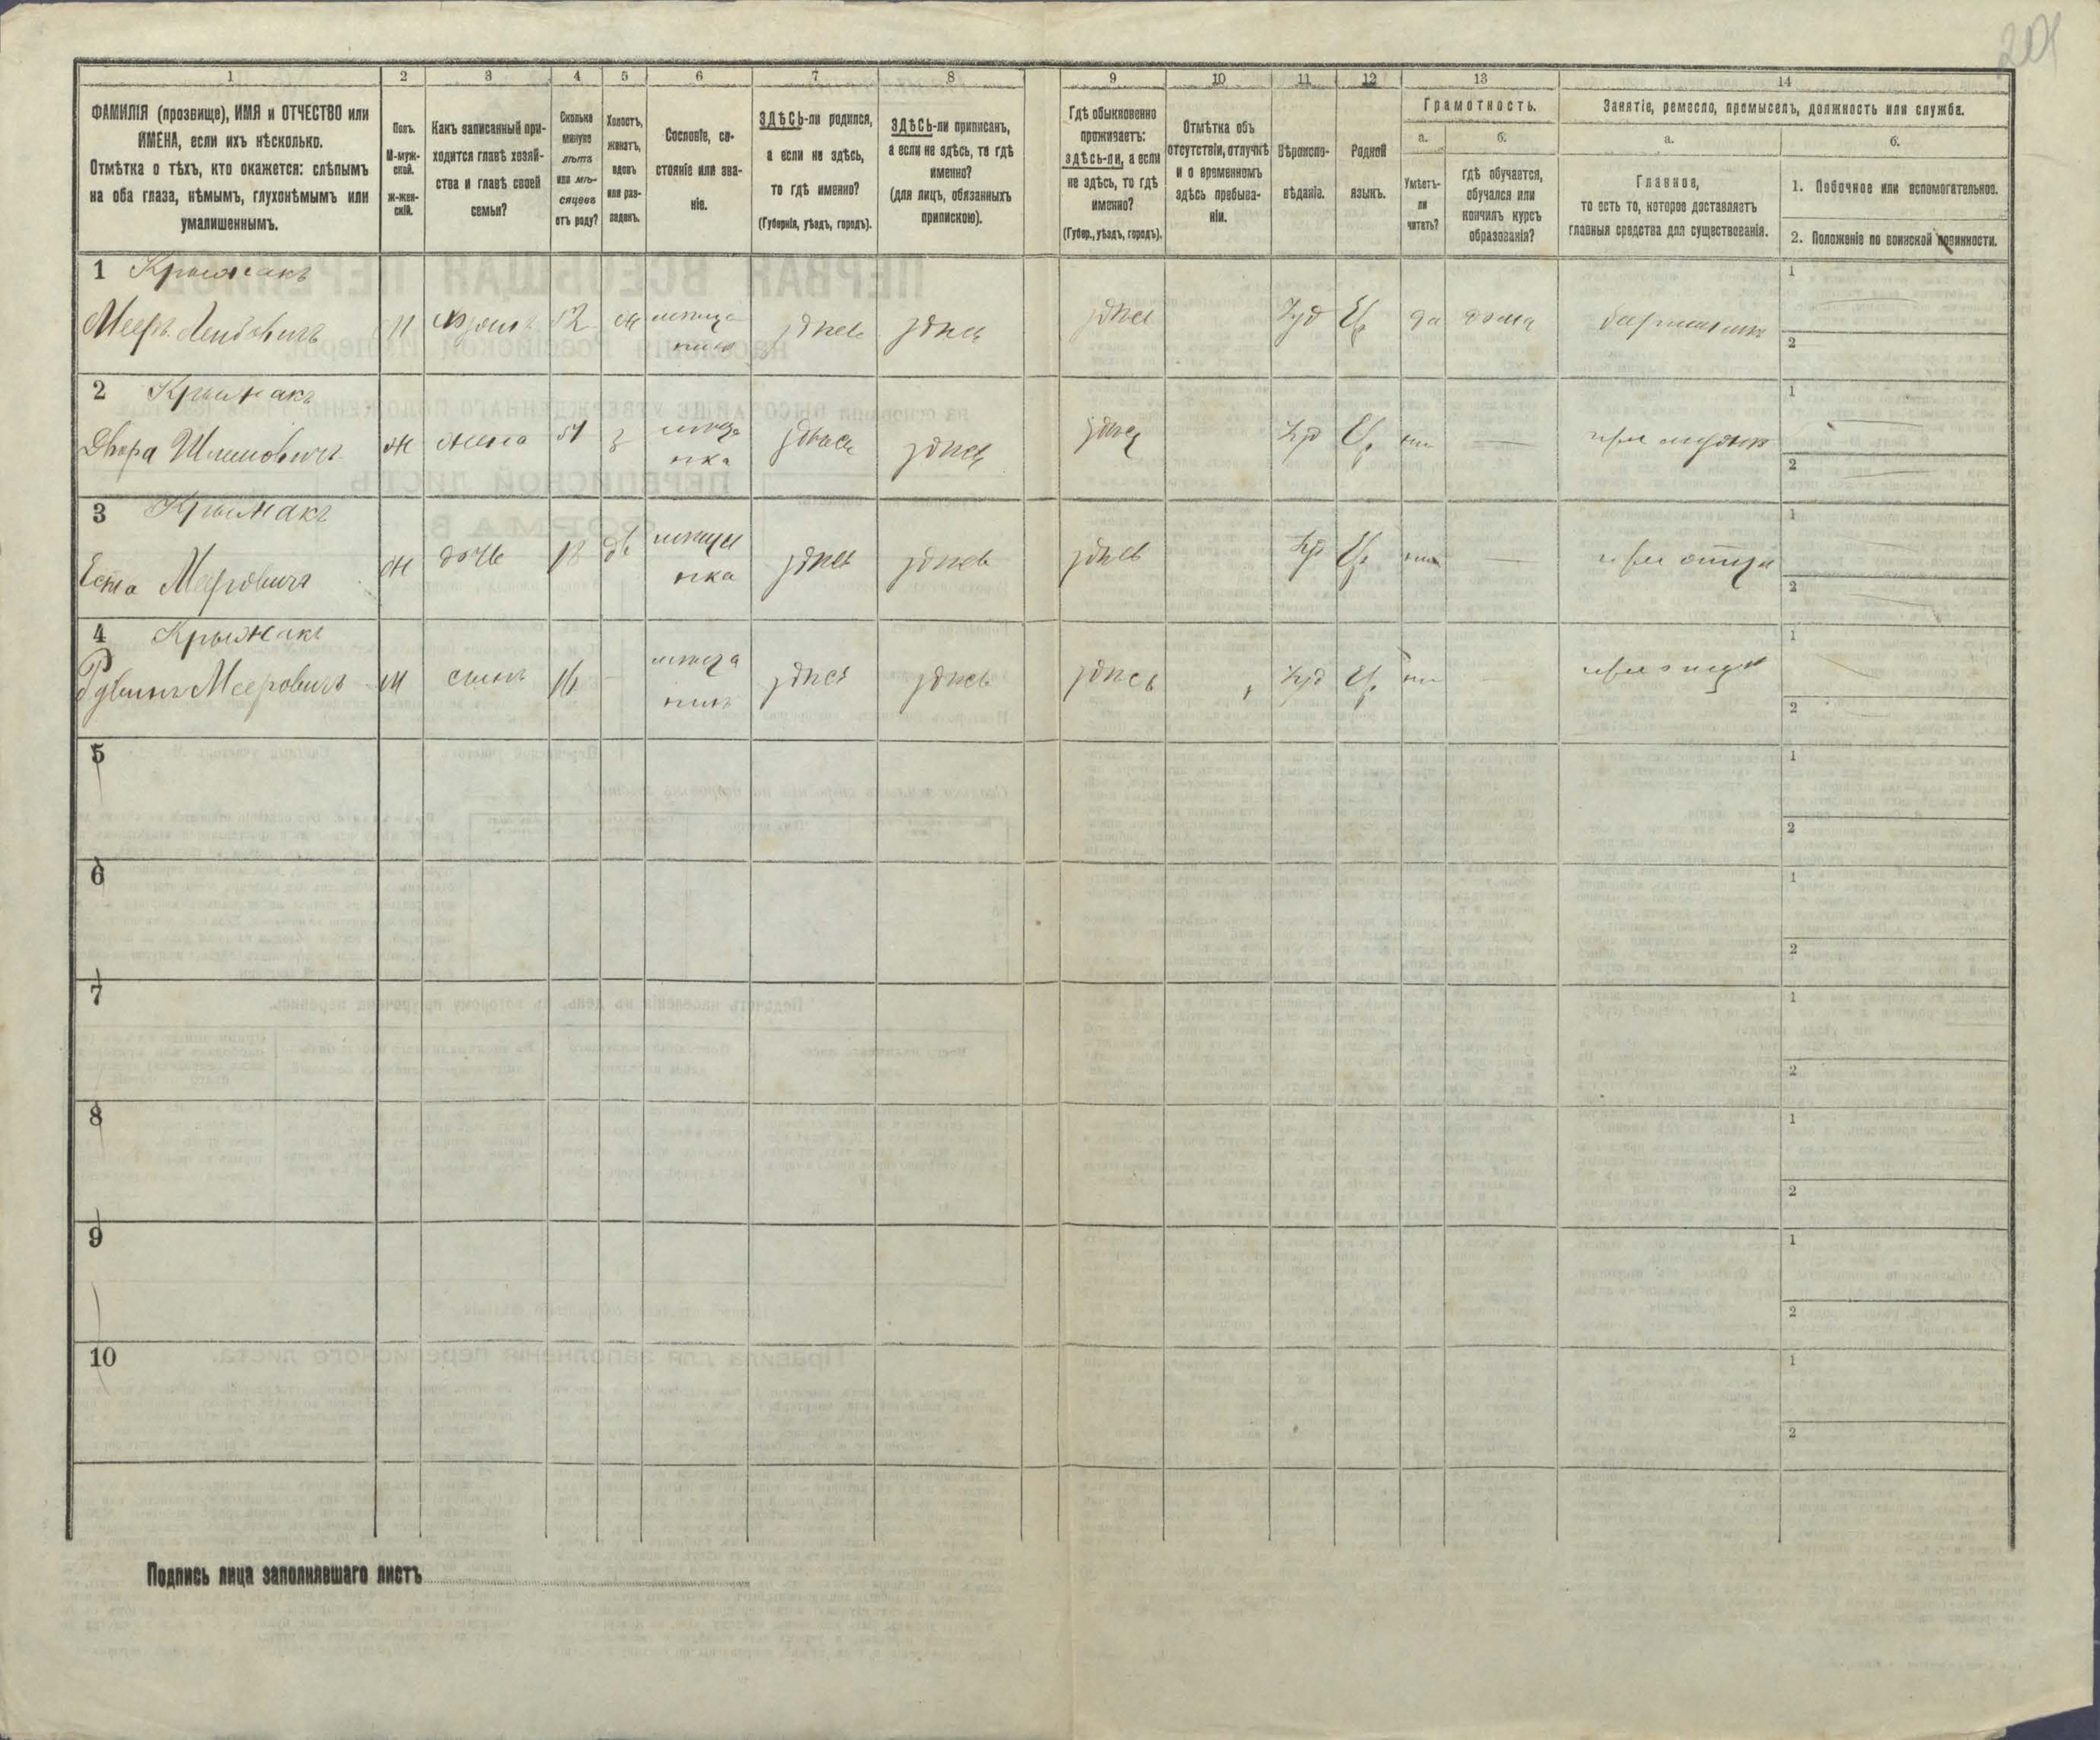 201
1 2 3 4 5 6 7 8 9 10 11 12 13 14
ФАМИЛІЯ (прозвище), ИМЯ и ОТЧЕСТВО или
ИМЕНА, если ихъ нѣсколько.
Отмѣтка о тѣхъ, кто окажется: слѣпымъ
на оба глаза, нѣмымъ, глухонѣмымъ или
умалишеннымъ.
Полъ.
М-муж-
ской.
ж-жен-
скій.
Какъ записанный при-
ходится главѣ хозяй-
ства и главѣ своей
семьи?
Сколько
минуло
лѣтъ
или мѣ-
сяцевъ
отъ роду?
Холостъ,
женатъ,
вдовъ
или раз-
веденъ.
Сословіе, со-
стояніе или зва-
ніе.
ЗДѢСЬ-ли родился,
а если не здѣсь,
то гдѣ именно?
(Губернія, уѣздъ, городъ).
ЗДѢСЬ-ли приписанъ,
а если не здѣсь, то гдѣ
именно?
(для лицъ, обязанныхъ
припискою).
Гдѣ обыкновенно
проживаетъ:
здѣсь-ли, а если
не здѣсь, то гдѣ
именно?
(Губер., уѣздъ, городъ).
Отмѣтка объ
отсутствіи, отлучкѣ
и о временномъ
здѣсь пребыва-
ніи.
Вѣроиспо-
вѣданіе.
Родной
языкъ.
Грамотность.
а.
Умѣетъ-
ли
читать?
б.
гдѣ обучается,
обучался или
кончилъ курсъ
образованія?
Занятіе, ремесло, промыселъ, должность или служба.
а.
Главное,
то есть то, которое доставляетъ
главныя средства для существованія.
б.
1. Побочное или вспомогательное.
2. Положеніе по воинской повинности.
1 Крыжакъ
Мееръ Лейбовичъ М 52 ж мѣща
нинъ здѣсь здѣсь здѣсь Іуд Ев да дома
1
2
2 Крыжакъ
Двора Шлимовичъ ж жена 51 з мѣща
нка здѣсь здѣсь здѣсь Іуд Ев нѣт — при мужѣ
1
2
3 Крыжакъ
Еста Мееровичъ ж дочь 18 дѣ мѣща
нка здѣсь здѣсь здѣсь Іуд Ев нѣт — при отцѣ
1
2
4 Крыжакъ
Мееровичъ М сынъ 16 — мѣща
нинъ здѣсь здѣсь здѣсь Іуд Ев нѣт — при отцѣ
1
2
5
1
2
6
1
2
7
1
2
8
1
2
9
1
2
10
1
2
Подпись лица заполнявшаго листъ